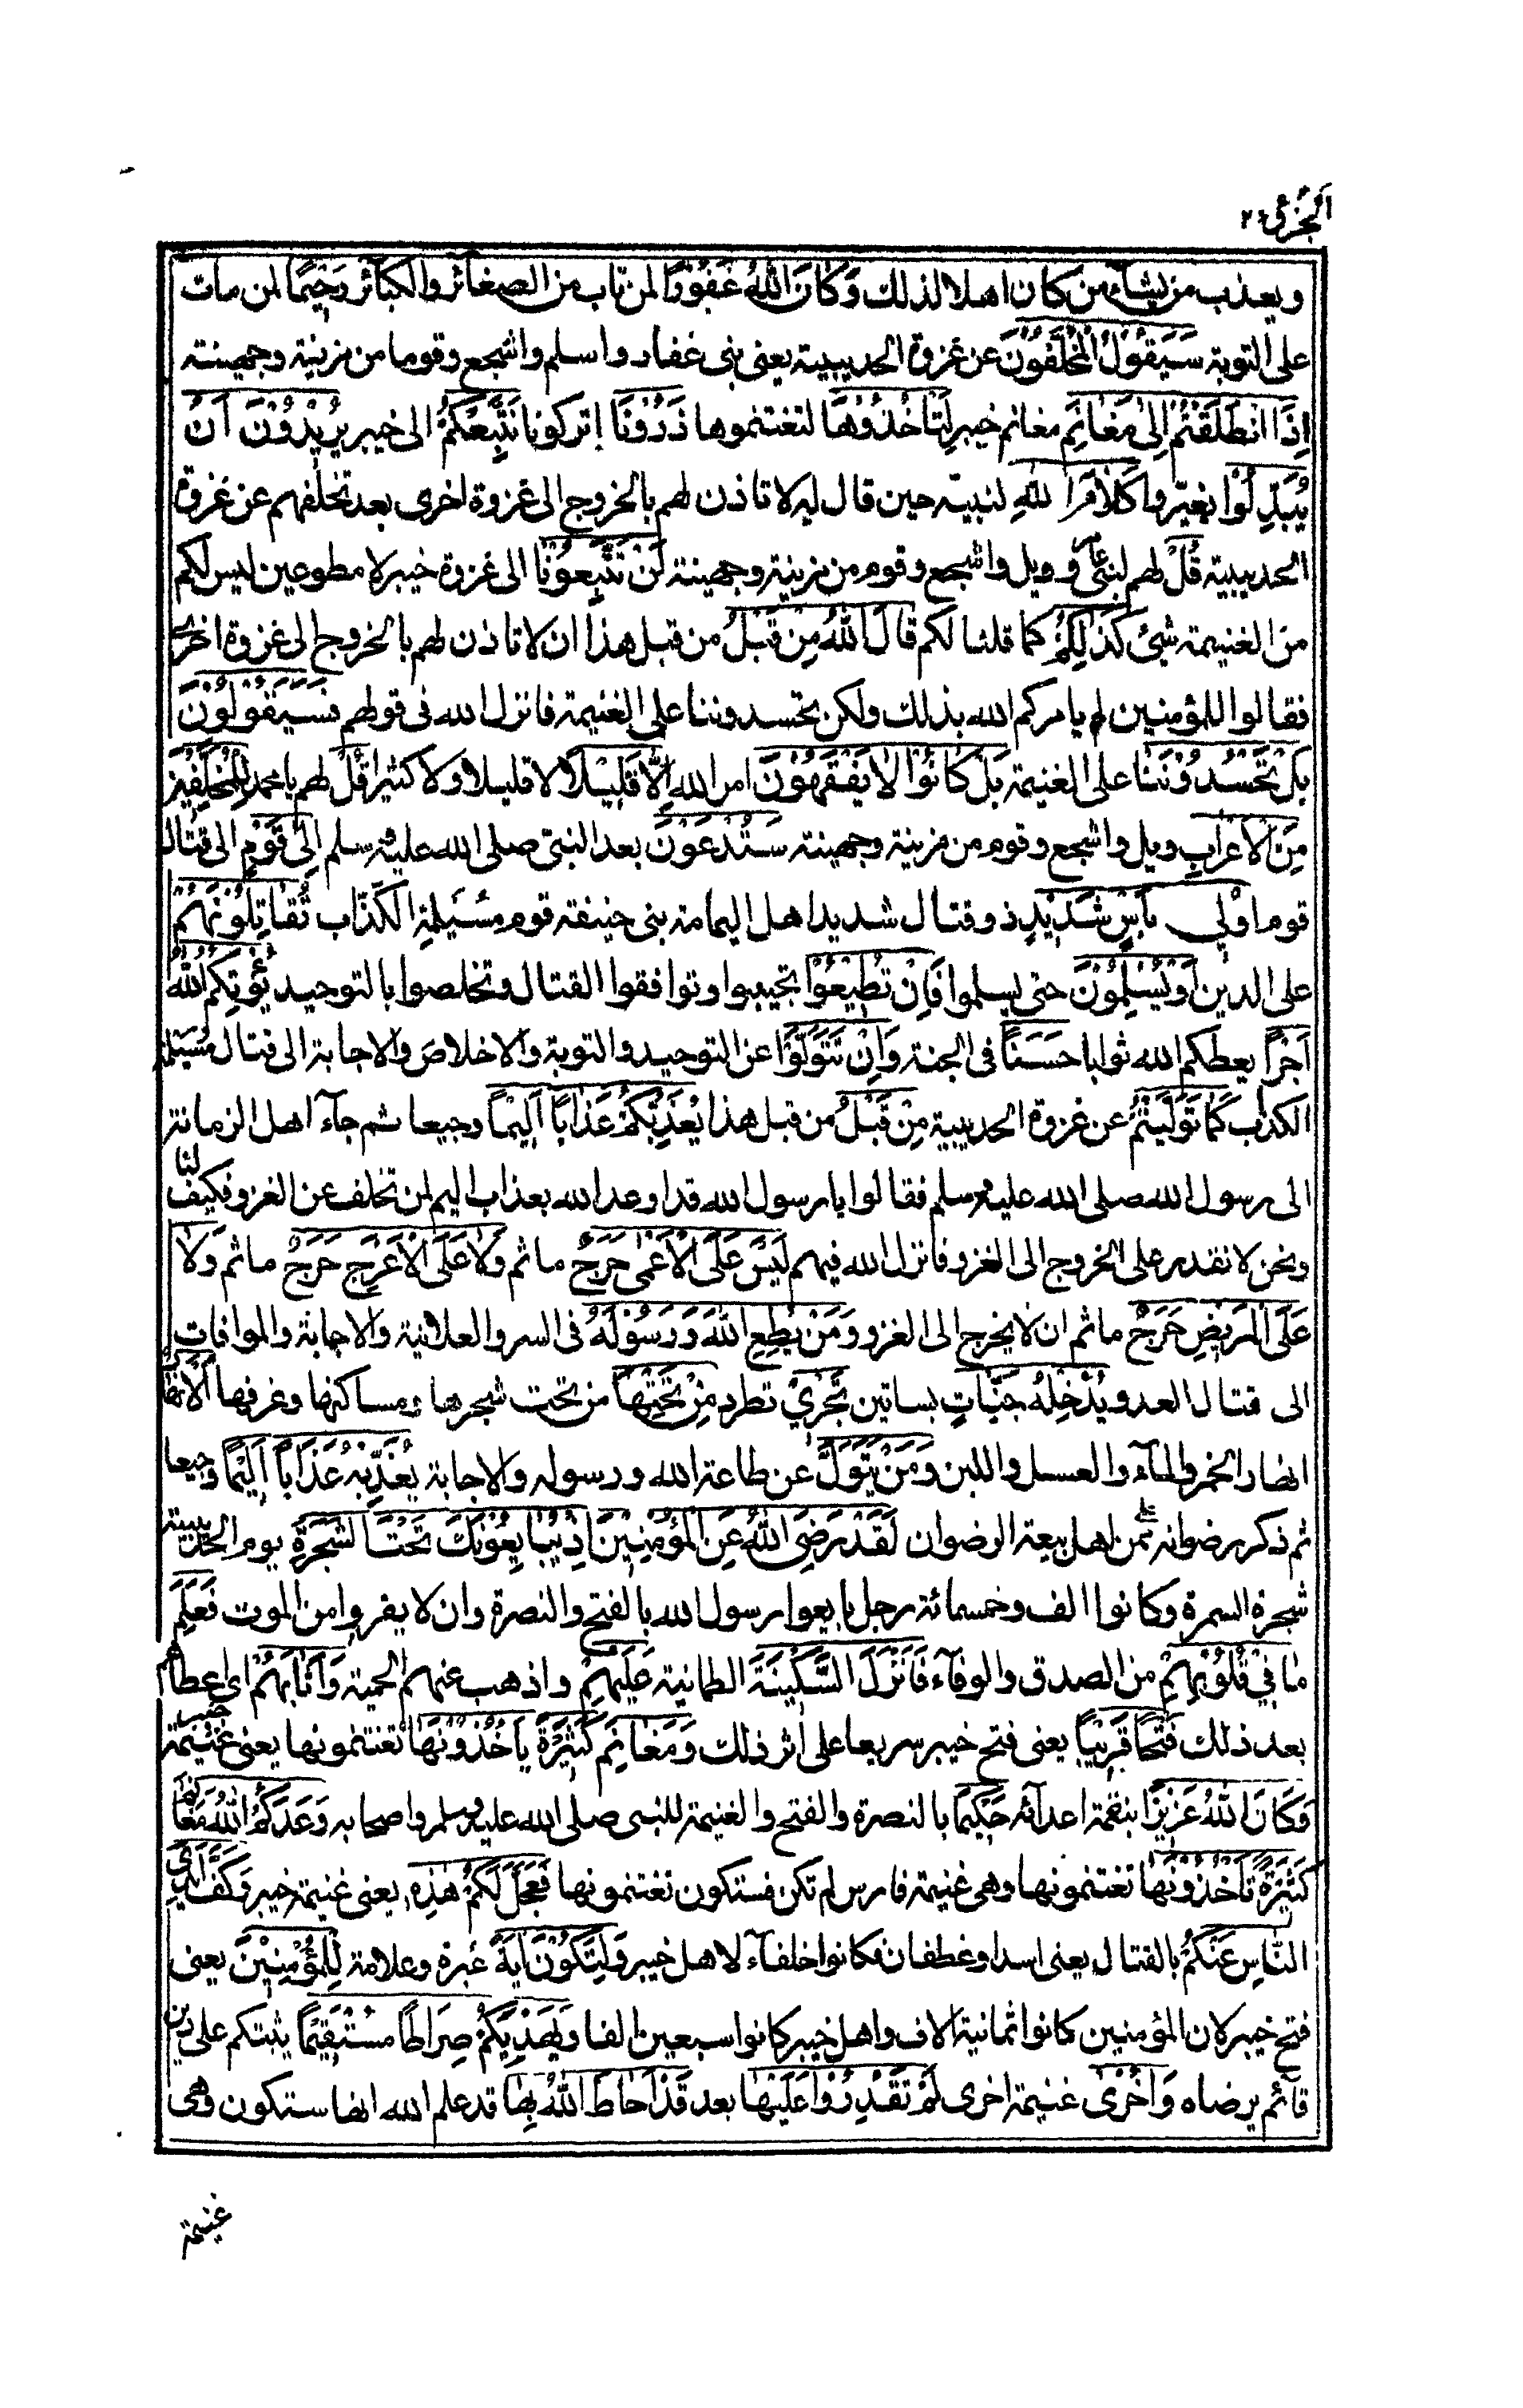 الجزء ٢٦
ويعذب من يشآء من كان اهلا لذلك وَكَانَ اللّٰهُ غَفُوْرًا لمن تاب من الصغآئر والكبآئر رَحِيْمًا لمن مات
على التوبة سَيَقُوْلُ الْمُخَلَّفُوْنَ عن غزوة الحديبية يعنى بنى غفار واسلم واشجع وقوما من مزينة وجهينة
اِذَا انْطَلَقْتُمْ اِلٰى مَغَانِمَ مغانم خيبر لِتَأْخُذُوْهَا لتغتنموها ذَرُوْنَا اتركونا نَتَّبِعْكُمْ الى خيبر يُرِيْدُوْنَ اَنْ
يُبَدِّلُوْا يغيروا كَلَامَ اللّٰهِ لنبيه حين قال له لا تاذن لهم بالخروج الى غزوة اخرى بعد تخلفهم عن غزوة
الحديبية قُلْ لهم لبنى وويل واشجع وقوم من مزينة وجهينة لَنْ تَتَّبِعُوْنَا الى غزوة خيبر لا مطوعين ليس لكم
من الغنيمة شئ كَذٰلِكُمْ كما قلنا لكم قَالَ اللّٰهُ مِنْ قَبْلُ من قبل هذا ان لا تاذن لهم بالخروج الى غزوة اخرى
فقالوا للمؤمنين لم يامركم الله بذلك ولكن تحسدوننا على الغنيمة فانزل الله فى قولهم فَسَيَقُوْلُوْنَ
بَلْ تَحْسُدُوْنَنَا على الغنيمة بَلْ كَانُوْا لَا يَفْقَهُوْنَ امر الله اِلَّا قَلِيْلًا لا قليلا ولا كثيرا قُلْ لهم يا محمد لِلْمُخَلَّفِيْنَ
مِنَ الْاَعْرَابِ ويل واشجع وقوم من مزينة وجهينة سَتُدْعَوْنَ بعد النبى صلى الله عليه وسلم اِلٰى قَوْمٍ الى قتال
قوم اُوْلِيْ بَأْسٍ شَدِيْدٍ ذو قتال شديد اهل اليمامة بنى حنيفة قوم مسيلمة الكذاب تُقَاتِلُوْنَهُمْ
على الدين اَوْ يُسْلِمُوْنَ حتى يسلموا فَاِنْ تُطِيْعُوْا تجيبوا وتوافقوا القتال وتخلصوا بالتوحيد يُؤْتِكُمُ اللّٰهُ
اَجْرًا يعطكم الله ثوابا حَسَنًا فى الجنة وَاِنْ تَتَوَلَّوْا عن التوحيد والتوبة والاخلاص والاجابة الى قتال مسيلمة
الكذاب كَمَا تَوَلَّيْتُمْ عن غزوة الحديبية مِنْ قَبْلُ من قبل هذا يُعَذِّبْكُمْ عَذَابًا اَلِيْمًا وجيعا ثم جآء اهل الزمانة
الى رسول الله صلى الله عليه وسلم فقالوا يا رسول الله قد اوعد الله بعذاب اليم لمن تخلف عن الغزو فكيف لنا
ونحن لا نقدر على الخروج الى الغزو فانزل الله فيهم لَيْسَ عَلَى الْاَعْمٰى حَرَجٌ ماثم وَلَا عَلَى الْاَعْرَجِ حَرَجٌ ماثم وَلَا
عَلَى الْمَرِيْضِ حَرَجٌ ماثم ان لا يخرج الى الغزو وَمَنْ يُطِعِ اللّٰهَ وَرَسُوْلَهٗ فى السر والعلانية والاجابة والموافات
الى قتال العدو يُدْخِلْهُ جَنّٰتٍ بساتين تَجْرِيْ تطرد مِنْ تَحْتِهَا من تحت شجرها ومساكنها وغرفها الْاَنْهَارُ
انهار الخمر والمآء والعسل واللبن وَمَنْ يَّتَوَلَّ عن طاعة الله ورسوله والاجابة يُعَذِّبْهُ عَذَابًا اَلِيْمًا وجيعا
ثم ذكر رضوانه عمن اهل بيعة الرضوان لَقَدْ رَضِيَ اللّٰهُ عَنِ الْمُؤْمِنِيْنَ اِذْ يُبَايِعُوْنَكَ تَحْتَ الشَّجَرَةِ يوم الحديبية
شجرة السمرة وكانوا الف وخمسمائة رجل بايعوا رسول الله بالفتح والنصرة وان لا يفروا من الموت فَعَلِمَ
مَا فِيْ قُلُوْبِهِمْ من الصدق والوفآء فَاَنْزَلَ السَّكِيْنَةَ الطمانية عَلَيْهِمْ واذهب عنهم الحمية وَاَثَابَهُمْ اى اعطاهم
بعد ذلك فَتْحًا قَرِيْبًا يعنى فتح خيبر سريعا على اثر ذلك وَمَغَانِمَ كَثِيْرَةً يَأْخُذُوْنَهَا تغتنمونها يعنى غنيمة خيبر
وَكَانَ اللّٰهُ عَزِيْزًا بنقمة اعدآئه حَكِيْمًا بالنصرة والفتح والغنيمة للنبى صلى الله عليه وسلم واصحابه وَعَدَكُمُ اللّٰهُ مَغَانِمَ
كَثِيْرَةً تَأْخُذُوْنَهَا تغتنمونها وهى غنيمة فارس لم تكن فستكون تغتنمونها فَعَجَّلَ لَكُمْ هٰذِهٖ يعنى غنيمة خيبر وَكَفَّ اَيْدِيَ
النَّاسِ عَنْكُمْ بالقتال يعنى اسدا وغطفان وكانوا حلفآء لاهل خيبر وَلِتَكُوْنَ اٰيَةً عبرة وعلامة لِلْمُؤْمِنِيْنَ يعنى
فتح خيبر لان المؤمنين كانوا ثمانية الاف واهل خيبر كانوا سبعين الفا وَيَهْدِيَكُمْ صِرَاطًا مُسْتَقِيْمًا يثبتكم على دين
قآئم يرضاه وَاُخْرٰى غنيمة اخرى لَمْ تَقْدِرُوْا عَلَيْهَا بعد قَدْ اَحَاطَ اللّٰهُ بِهَا قد علم الله انها ستكون وهى
غنيمة